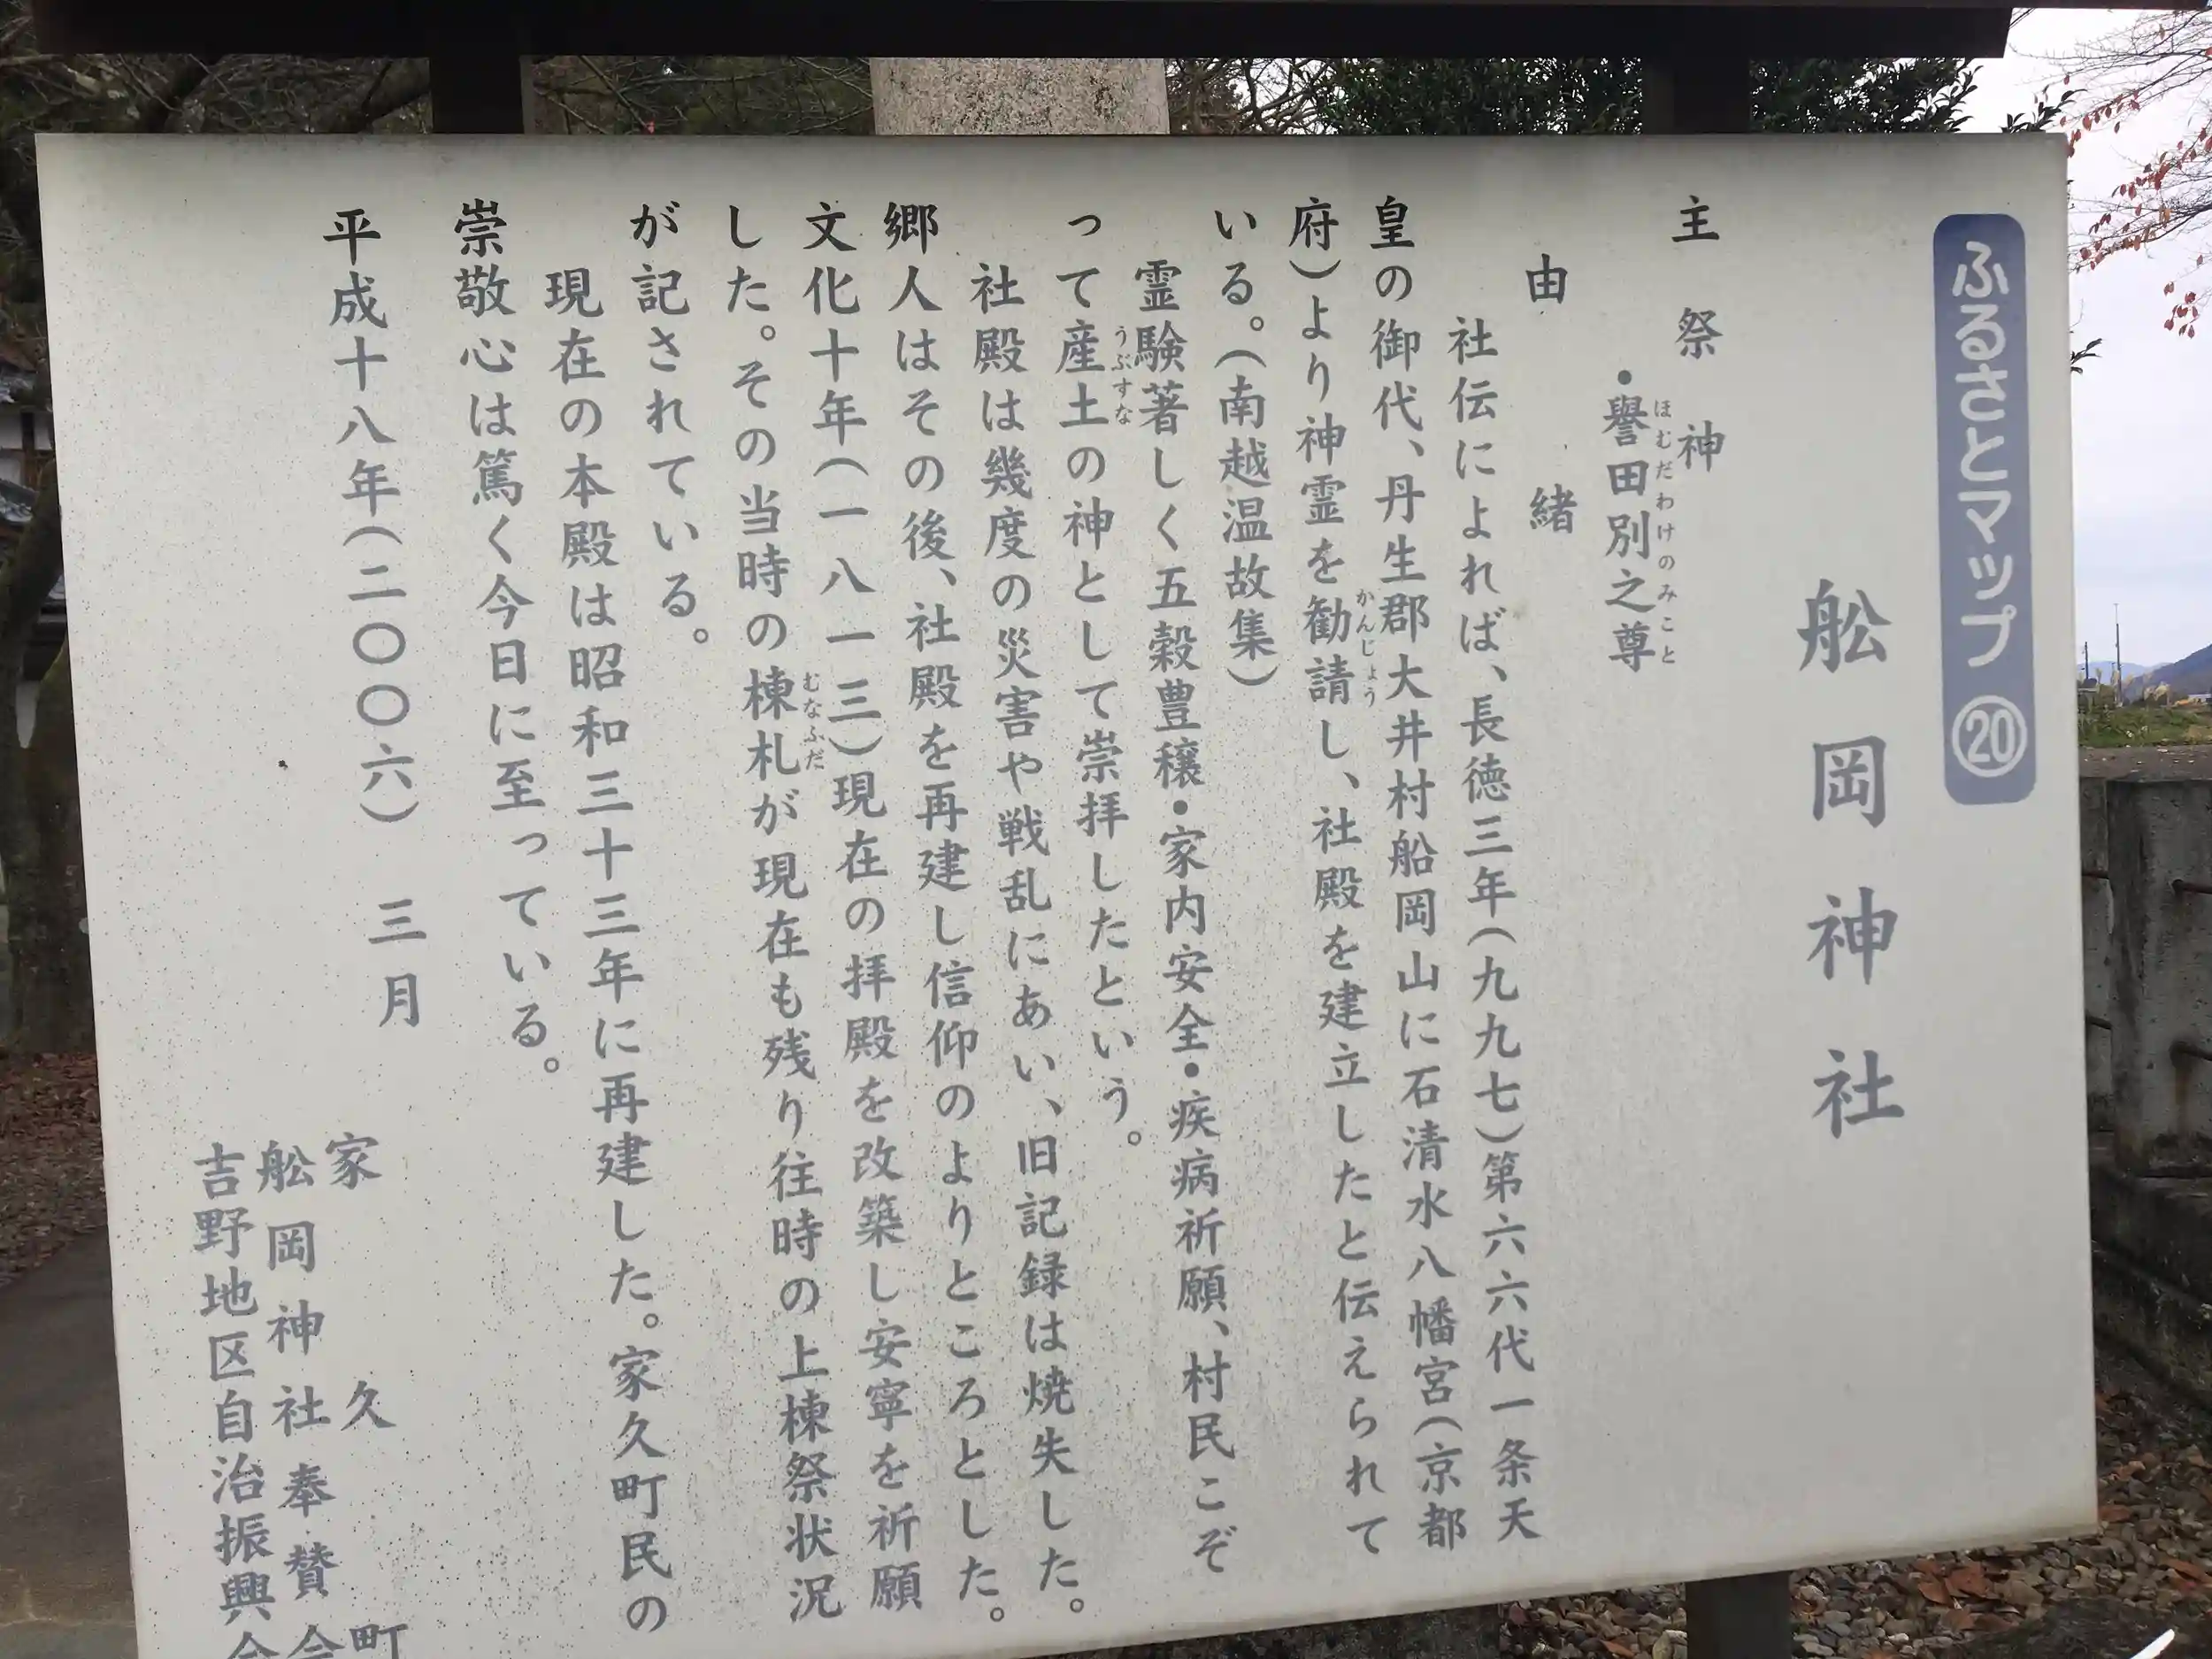 ふるさとマップ⑳
舩岡神社
主祭神
・譽田別之尊
ほむだわけのみこと
由緒
社伝によれば、長徳三年(九九七)第六六代一条天
皇の御代、丹生郡大井村船岡山に石清水八幡宮(京都
府)より神霊を勧請し、社殿を建立したと伝えられて
かんじょう
いる。(南越温故集)
霊験著しく五穀豊穣・家内安全・疾病祈願、村民こぞ
って産土の神として崇拝したという。
うぶすな
社殿は幾度の災害や戦乱にあい、旧記録は焼失した。
郷人はその後、社殿を再建し信仰のよりところとした。
文化十年(一八一三)現在の拝殿を改築し安寧を祈願
した。その当時の棟札が現在も残り往時の上棟祭状況
むなふだ
が記されている。
現在の本殿は昭和三十三年に再建した。家久町民の
崇敬心は篤く今日に至っている。
平成十八年(二〇〇六) 三月
家久町
舩岡神社奉賛会
吉野地区自治振興会